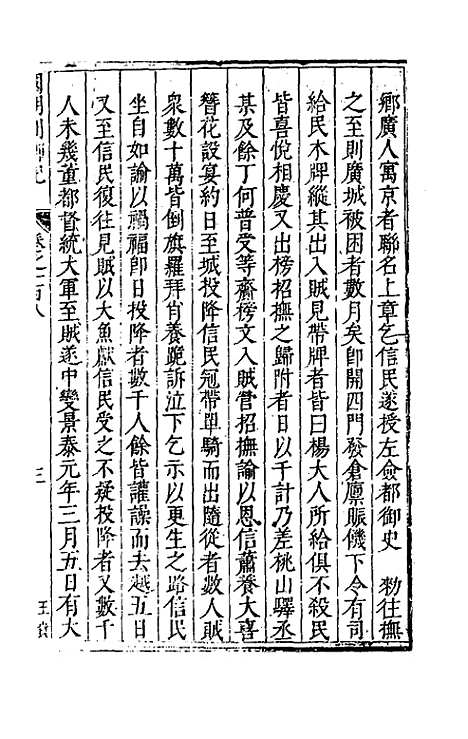 鄉廣人寓京者聯名上章乞信民遂授左僉都御史　勑往撫
之至則廣城被困者數月矣即開四門發倉廩賑饑下令有司
給民木牌縱其出入賊見帶牌者皆曰楊大人所給俱不殺民
皆喜悅相慶又出榜招撫之歸附者日以千計乃差桃山驛丞
某及餘丁何普受等齎榜文入賊營招撫諭以恩信蕭養大喜
簪花設宴約日至城投降信民冠帶單騎而出隨從者數人賊
衆數十萬皆倒旗羅拜肖養跪訴泣下乞示以更生之路信民
坐自如諭以禍福即日投降者數千人餘皆讙譟而去越五日
又至信民復往見賊以大魚獻信民受之不疑投降者又數千
人未幾董都督統大軍至賊遂中變景泰元年三月五日有大
卷之一百八
三